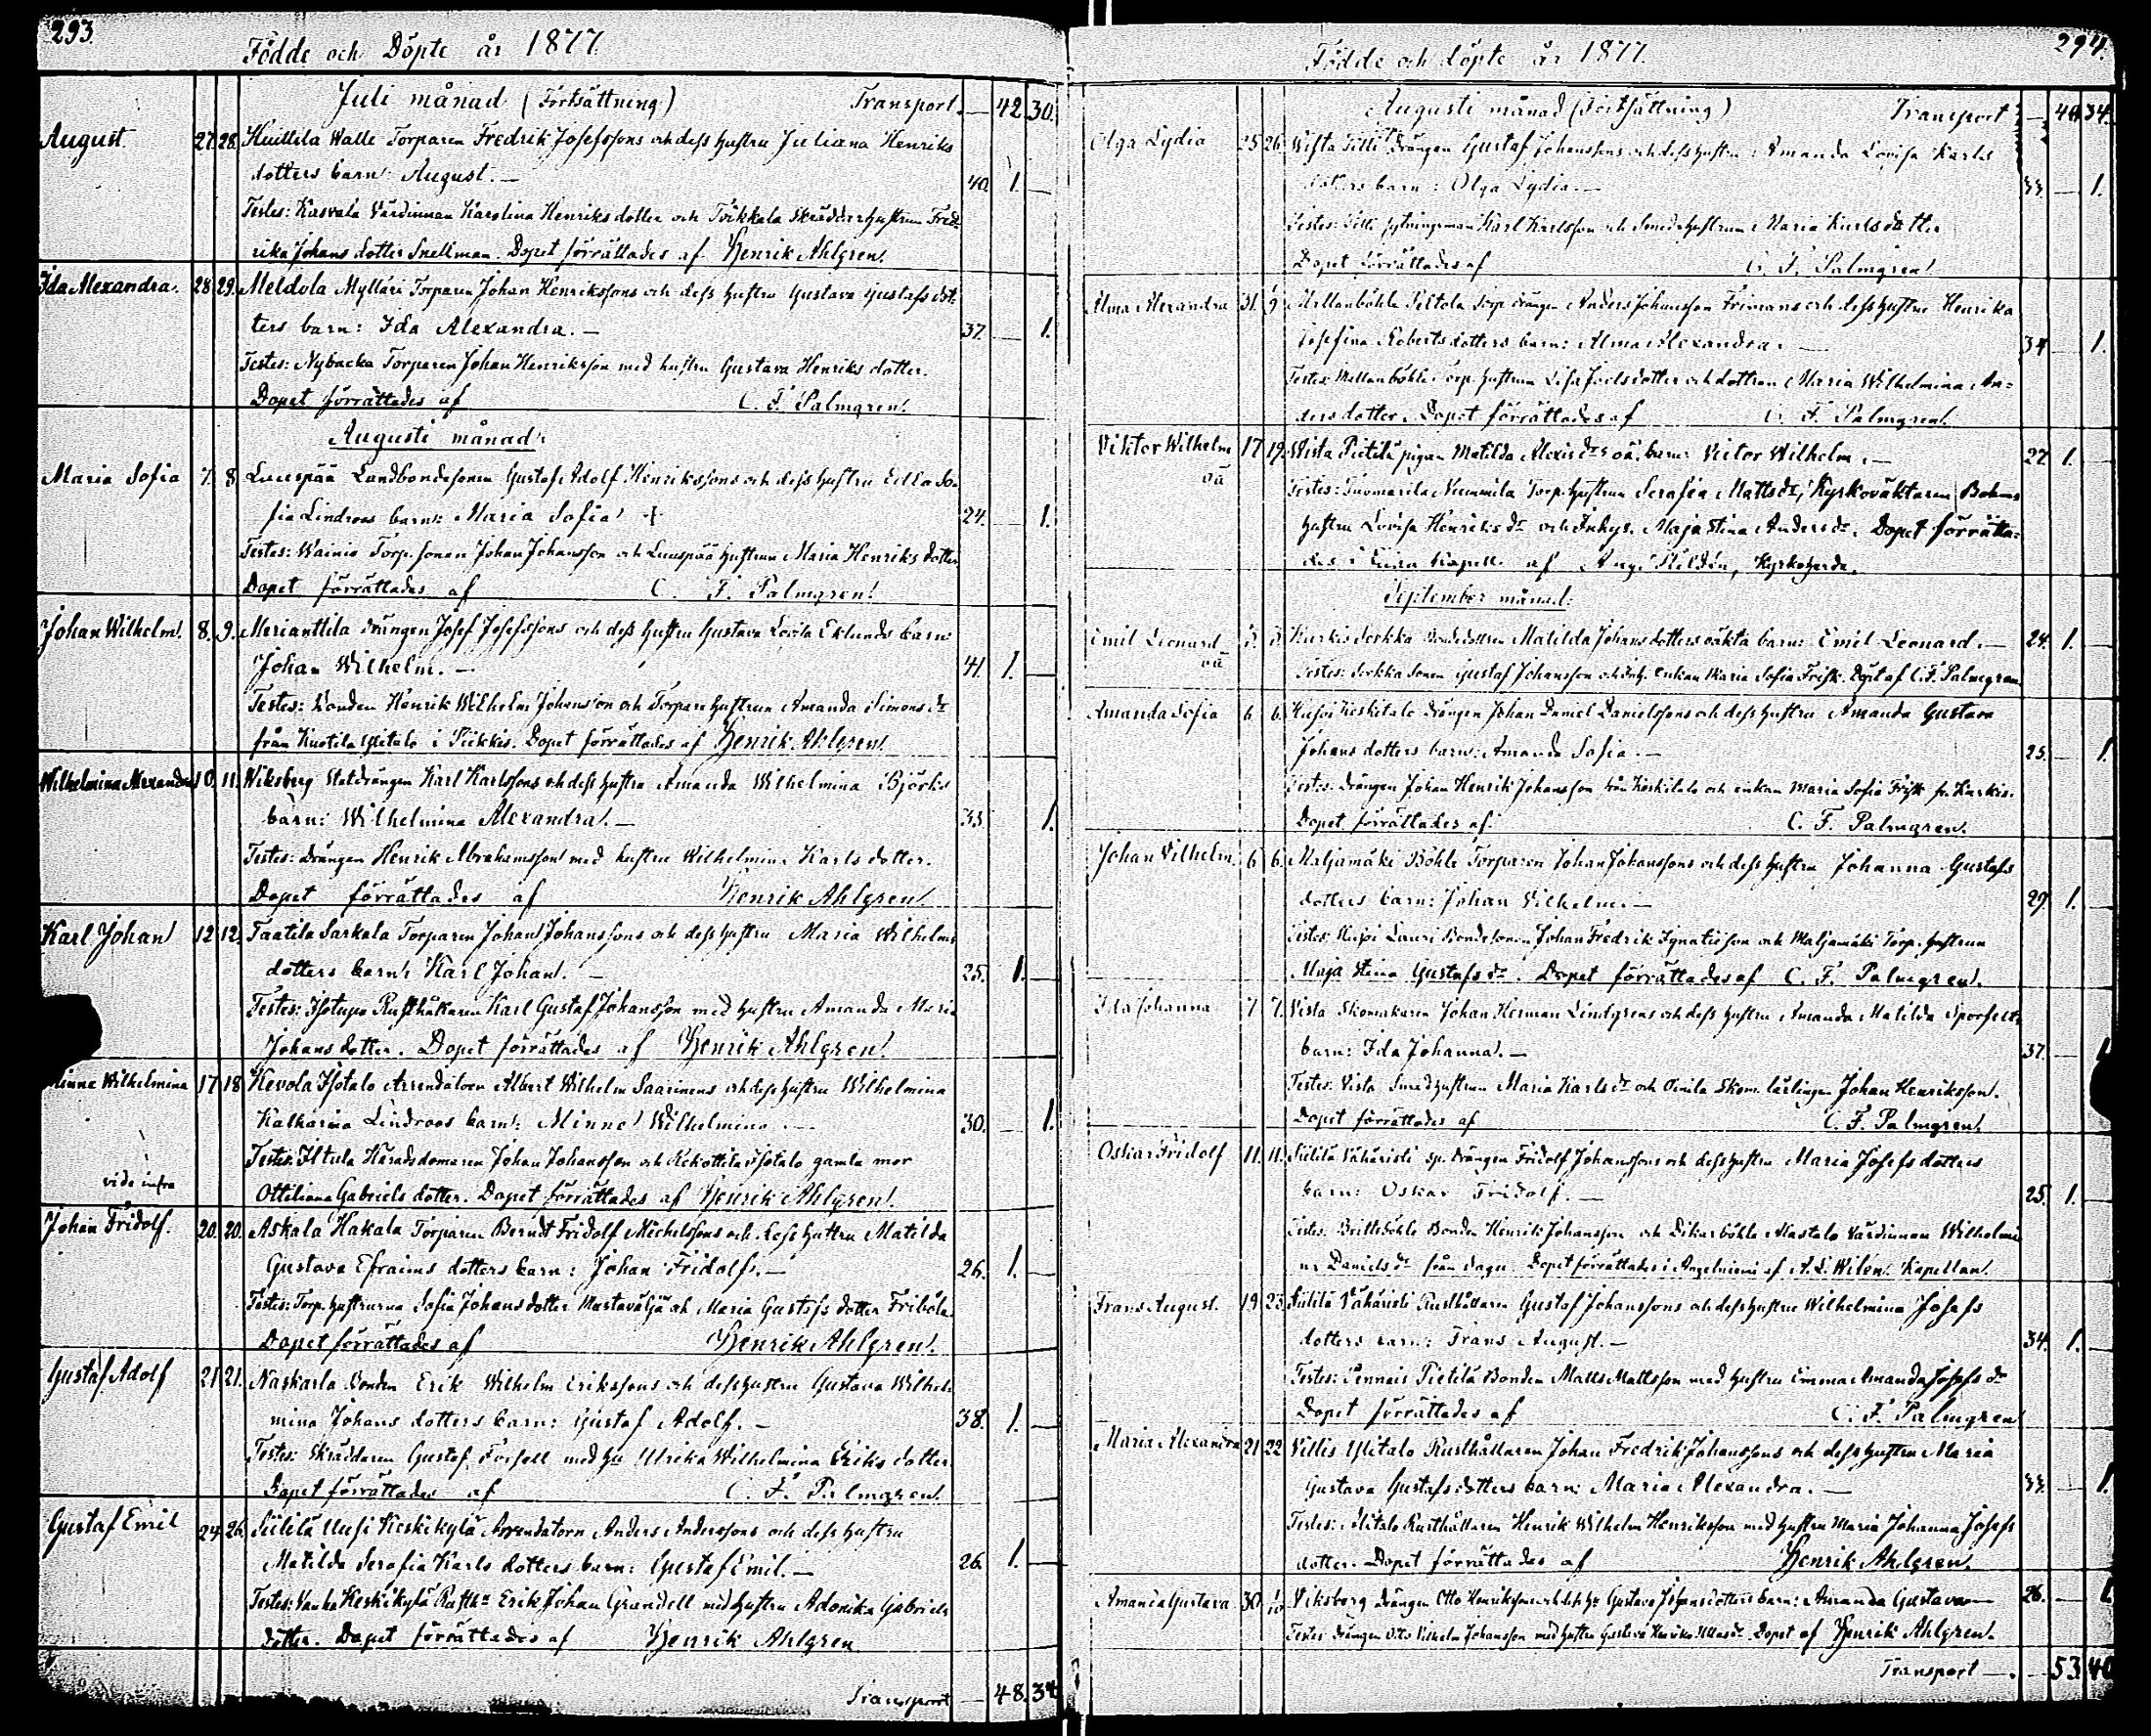 293.
Födde och Döpte år 1877.
Juli månad (Fortsättning) Transport. — 42 30.
August 27. 28. Huittila Walle Torparen Fredrik Josefssons och dess hustru Juliana Henriks
dotters barn: August. — 40. 1. —
Testes: Kasvala Värdinnan Karolina Henriks dotter och Tökkala Skräddarhustrun Fred-
rika Johans dotter Snellman. Dopet förrättades af Henrik Ahlgren.
Ida Alexandra. 28. 29. Meldola Mylläri Torparen Johan Henrikssons och dess hustru Gustava Gustafs dot-
ters barn: Ida Alexandra. — 37. — 1.
Testes: Nybacka Torparen Johan Henriksson med hustru Gustava Henriks dotter.
Dopet förrättades af C. F. Palmgren.
Augusti månad:
Maria Sofia 7. 8 Luuspää Landbondesonen Gustaf Adolf Henrikssons och dess hustru Edla So-
fia Lindroos barn: Maria Sofia 24. — 1.
Testes: Wainio Torp. sonen Johan Johansson och Luuspää hustrun Maria Henriks dotter
Dopet förrättades af C. F. Palmgren.
Johan Wilhelm. 8. 9. Merianttila drängen Josef Josefssons och dess hustru Gustava Lovisa Eklunds barn
Johan Wilhelm. — 41. 1. —
Testes: Bonden Henrik Wilhelm Johansson och Torparehustrun Amanda Simons dr
från Kuotila Ylitalo i Piikkis. Dopet förrättades af Henrik Ahlgren.
Wilhelmina Alexandra 10. 11. Wiksberg Statdrängen Karl Karlssons och dess hustru Amanda Wilhelmina Björks
barn: Wilhelmina Alexandra. — 33. 1.
Testes: Drängen Henrik Abrahamsson med hustru Wilhelmina Karls dotter.
Dopet förrättades af Henrik Ahlgren.
Karl Johan 12 12. Taatila Sarkala Torparen Johan Johanssons och dess hustru Maria Wilhelms
dotters barn: Karl Johan. — 25. 1. —
Testes: Isotupa Rusthållaren Karl Gustaf Johansson med hustru Amanda Maria
Johans dotter. Dopet förrättades af Henrik Ahlgren.
Minna Wilhelmina 17 18 Kevola Isotalo Arrendatorn Albert Wilhelm Saarinens och dess hustru Wilhelmina
Katharina Lindroos barn: Minna Wilhelmina. — 30. — 1.
Testes: Iltula Häradsdomaren Johan Johansson och Rekottila Isotalo gamla mor
vide infra
Ottiliana Gabriels dotter. Dopet förrättades af Henrik Ahlgren.
Johan Fridolf. 20. 20. Askala Hakala Torparen Berndt Fridolf Michelssons och dess hustru Matilda
Gustava Efraims dotters barn: Johan Fridolf. — 26. 1. —
Testes: Torp. hustrurna Sofia Johans dotter Mustaväljä och Maria Gustafs dotter Friböle.
Dopet förrättades af Henrik Ahlgren.
Gustaf Adolf 21 21. Naskarla Bonden Erik Wilhelm Erikssons och dess hustru Gustava Wilhel-
mina Johans dotters barn: Gustaf Adolf. — 38. 1. —
Testes: Skräddaren Gustaf Forsell med hu Ulrika Wilhelmina Eriks dotter
Dopet förrättades af C. F. Palmgren.
Gustaf Emil 24 26. Siililä Uusi Keskikylä Arrendatorn Anders Anderssons och dess hustru
Matilda Serafia Karls dotters barn: Gustaf Emil. — 26. 1. —
Testes: Vanha Keskikylä Rusth. Erik Johan Grandell med hustru Adonika Gabriels
dotter. Dopet förrättades af Henrik Ahlgren
Transport — 48. 34
294.
Födde och Döpte år 1877.
Augusti månad (Fortsättning) Transport — 48 34.
Olga Lydia 25 26 Wista Tilli Drängen Gustaf Johanssons och dess hustru Amanda Lovisa Karls
dotters barn: Olga Lydia. — 33. — 1.
Testes: Tilli sytningsman Karl Karlsson och Smedshustrun Maria Karls dotter
Dopet förrättades af C. F. Palmgren.
Alma Alexandra 31. 9 Mellanböhle Peltola Torp drängen Anders Johansson Frimans och dess hustru Henrika
Josefina Roberts dotters barn: Alma Alexandra. — 34 — 1.
Testes: Mellanböhle Torp. hustrun Lisa Joels dotter och dottren Maria Wilhelmina An-
ders dotter. Dopet förrättades af C. F. Palmgren.
Viktor Wilhelm 17 19. Wista Pietilä pigan Matilda Alexis drs oä. barn: Victor Wilhelm. — 27. 1. —
oä Testes: Tuomarila Nummila Torp. hustrun Serafia Matts dr, Kyrkoväktaren Bohms
hustru Lovisa Henriks dr och Inhys. Maja Stina Anders dr. Dopet förrätta-
des i kapell af Aug. Kyrkoherde.
September månad:
Emil Leonard 5. 5. Kurkis Sorkka Bondedottren Matilda Johans dotters oäkta barn: Emil Leonard. — 24. 1. —
oä Testes: Sorkka Sonen Gustaf Johansson och Inh. enkan Maria Sofia Frisk. Döpt af C. F. Palmgren
Amanda Sofia 6. 6. Huso Keskitalo Drängen Johan Daniel Danielssons och dess hustru Amanda Gustava
Johans dotters barn: Amanda Sofia. — 25. — 1.
Testes: Drängen Johan Henrik Johansson från Keskitalo och enkan Maria Sofia Frisk fr. Kurkis.
Dopet förrättades af C. F. Palmgren.
Johan Vilhelm. 6 6. Maljamäki Böhle Torparen Johan Johanssons och dess hustru Johanna Gustafs
dotters barn: Johan Vilhelm. — 29. 1. —
Testes: Lauri Bondesonen Johan Fredrik Ignatiisson och Maljamäki Torp. hustrun
Maja Stina Gustafs dr. Dopet förrättades af C. F. Palmgren.
Ida Johanna 7 7. Vista Skomakaren Johan Herman Lindgrens och dess hustru Amanda Matilda
barn: Ida Johanna. — 37. — 1
Testes: Vista Smedhustrun Maria Karls dr och Skom. lärlingen Johan Henriksson.
Dopet förrättades af C. F. Palmgren.
Oskar Fridolf 11. 11. Siililä Vähäristi sp. Drängen Fridolf Johanssons och dess hustru Maria Josefs dotters
barn: Oskar Fridolf. — 25. 1. —
Testes: Britteböhle Bonden Henrik Johansson och Dikarböhle Alastalo Värdinnan Wilhelmi-
na Daniels dr från Sagu. Dopet förrättades i Angelniemi af A. L. Wilén. Kapellan.
Frans August. 19. 23. Siililä Vähäristi Rusthållaren Gustaf Johanssons och dess hustru Wilhelmina Josefs
dotters barn: Frans August. — 34. 1. —
Testes: Pennais Pietilä Bonden Matts Mattsson med hustru Emma Amanda Josefs dr
Dopet förrättades af C. F. Palmgren
Maria Alexandra 21 22 Villis Ylitalo Rusthållaren Johan Fredrik Johanssons och dess hustru Maria
Gustava Gustafs dotters barn: Maria Alexandra. — 33. — 1
Testes: Alitalo Rusthållaren Henrik Wilhelm Henriksson med hustru Maria Johanna Josefs
dotter. Dopet förrättades af Henrik Ahlgren.
Amanda Gustava 30. 1/10 Viksberg Drängen Otto Henrikssons och dess hu Gustava Johans dotters barn: Amanda Gustava — 26. — 1
Testes Drängen Otto Vilhelm Johansson med hustru Gustava Henrika dr. Dopet af Henrik Ahlgren.
Transport — 53 40